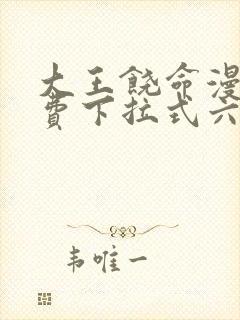 大王饶命漫
费下拉式六
韦唯一